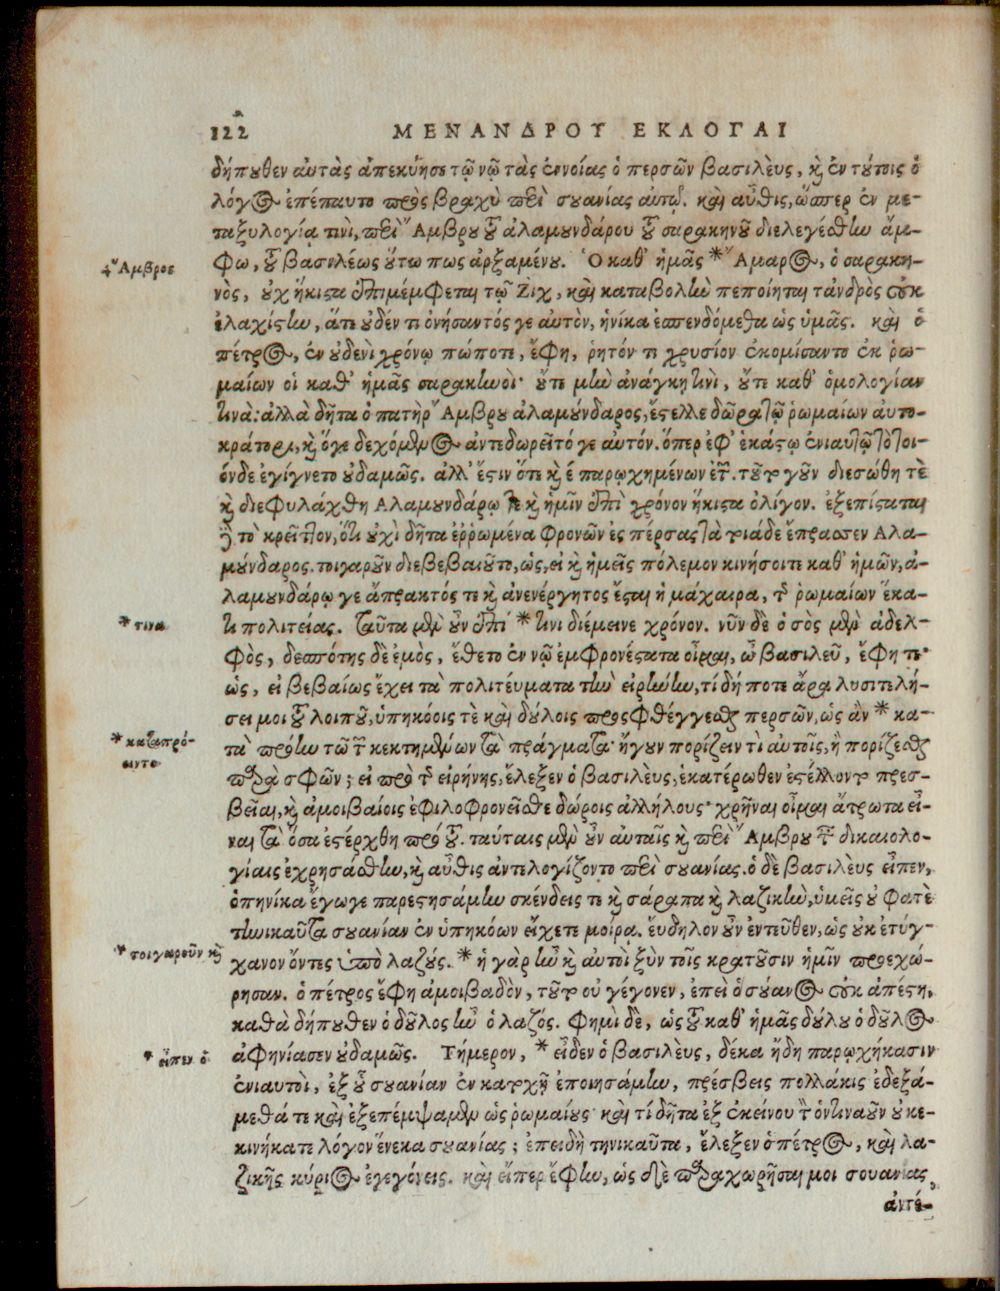 122 ΜΕΝΑΝΔΡΟΥ ΕΚΛΟΓΑΙ
δήπουθεν αὐτὰς ἀπεκύησε τῷ νῷ τὰς ἐννοίας ὁ περσῶν βασιλεὺς, καὶ ἐν τούτοις ὁ
λόγος ἐπέπαυτο πρὸς βραχὺ περὶ σουανίας αὐτῷ. καὶ αὖθις, ὥσπερ ἐν με-
ταξυλογίᾳ τινὶ, περὶ Ἄμβρου τοῦ ἀλαμουνδάρου τοῦ σαρακηνοῦ διελεγέσθην ἄμ-
φω, τοῦ βασιλέως οὕτω πως ἀρξαμένου. Ὁ καθ' ἡμᾶς * Ἄμαρος, ὁ σαρακη-
νὸς, οὐχ ἥκιστα ἐπιμέμφεται τῷ Ζὶχ, καὶ καταβολὴν πεποίηται τἀνδρὸς οὐκ
ἐλαχίστην, ἅτε οὐδέν τι ὀνήσαντός γε αὐτὸν, ἡνίκα ἐσπενδόμεθα ὡς ὑμᾶς. καὶ ὁ
πέτρος, ἐν οὐδενὶ χρόνῳ πώποτε, ἔφη, ῥητόν τι χρυσίον ἐκομίσαντο ἐκ ῥω-
μαίων οἱ καθ' ἡμᾶς σαρακηνοί· οὔτε μὴν ἀνάγκῃ τινὶ, οὔτε καθ' ὁμολογίαν
τινά: ἀλλὰ δῆτα ὁ πατὴρ Ἄμβρου ἀλαμούνδαρος, ἔστελλε δῶρα τῷ ῥωμαίων αὐτο-
κράτορι, καὶ ὅγε δεχόμενος ἀντεδωρεῖτό γε αὐτόν. ὅπερ ἐφ' ἑκάστῳ ἐνιαυτῷ τὸ τοι-
όνδε ἐγίγνετο οὐδαμῶς. ἀλλ' ἔστιν ὅτε καὶ ε παρῳχημένων ἐτῶν. τοῦτο γοῦν διεσώθη τὲ
καὶ διεφυλάχθη Αλαμουνδάρῳ τε καὶ ἡμῖν ἐπὶ χρόνον ἥκιστα ὀλίγον. ἐξεπίσταται
δὲ τὸ κρεῖττον, ὅτι οὐχὶ δῆτα ἐῤῥωμένα φρονῶν ἐς πέρσας τὰ τοιάδε ἔπρασσεν Αλα-
μούνδαρος. τοιγαροῦν διεβεβαιοῦτο, ὡς, εἰ καὶ ἡμεῖς πόλεμον κινήσοιτε καθ' ἡμῶν, ἀ-
λαμουνδάρῳ γε ἄπρακτός τε καὶ ἀνενέργητος ἔσται ἡ μάχαιρα, τῆς ῥωμαίων ἕκα-
τι πολιτείας. ταῦτα μὲν οὖν ἐπὶ * τινι διέμεινε χρόνον. νῦν δὲ ὁ σὸς μὲν ἀδελ-
φὸς, δεσπότης δὲ ἐμὸς, ἔθετο ἐν νῷ ἐμφρονέστατα οἶμαι, ὦ βασιλεῦ, ἔφη τε·
ὡς, εἰ βεβαίως ἔχει τὰ πολιτεύματα τὴν εἰρήνην, τί δή ποτε ἄρα λυσιτελή-
σει μοι τοῦ λοιποῦ, ὑπηκόοις τὲ καὶ δούλοις προσφθέγγεσθαι περσῶν, ὡς ἂν * κα-
τὰ πρόην τῶν τῶν κεκτημένων τὰ πράγματα· ἤγουν πορίζειν τὶ αὐτοῖς, ἢ πορίζεσθαι
παρὰ σφῶν; εἰ πρὸ τῆς εἰρήνης, ἔλεξεν ὁ βασιλεὺς, ἑκατέρωθεν ἐστέλλοντο πρεσ-
βεῖαι, καὶ ἀμοιβαίοις ἐφιλοφρονεῖσθε δώροις ἀλλήλους· χρῆναι οἶμαι ἄτρωτα εἶ-
ναι τὰ ὅσα ἐστέρχθη πρὸ τοῦ. ταύταις μὲν οὖν αὐταῖς καὶ περὶ Ἄμβρου τῶν δικαιολο-
γίαις ἐχρησάσθην, καὶ αὖθις ἀντελογίζοντο περὶ σουανίας. ὁ δὲ βασιλεὺς εἶπεν,
ὁπηνίκα ἔγωγε παρεστησάμην σκένδεις τε καὶ σάραπα καὶ λαζικὴν, ὑμεῖς οὐ φατὲ
τηνικαῦτα σουανίαν ἐν ὑπηκόων εἴχετε μοίρᾳ. εὔδηλον οὖν ἐντεῦθεν, ὡς οὐκ ἐτύγ-
χανον ὄντες ὑπὸ λαζούς. * ἢ γὰρ ἦν καὶ αὐτοὶ ξὺν τοῖς κρατοῦσιν ἡμῖν προεχώ-
ρησαν. ὁ πέτρος ἔφη ἀμοιβαδὸν, τοῦτο οὐ γέγονεν, ἐπεὶ ὁ σουανος οὐκ ἀπέστη,
καθὰ δήπουθεν ὁ δοῦλος ἦν ὁ λαζός. φημὶ δὲ, ὡς τοῦ καθ' ἡμᾶς δούλου ὁ δοῦλος
ἀφηνίασεν οὐδαμῶς. Τήμερον, * εἶδεν ὁ βασιλεὺς, δέκα ἤδη παρῳχήκασιν
ἐνιαυτοὶ, ἐξ οὗ σουανίαν ἐν κατοχῇ ἐποιησάμην, πρέσβεις πολλάκις ἐδεξά-
μεθά τε καὶ ἐξεπέμψαμεν ὡς ῥωμαίους· καὶ τί δῆτα ἐξ ἐκείνου τὸν ὁντιναοῦν οὐκ ἐκε-
κινήκατε λόγον ἕνεκα σουανίας; ἐπειδὴ τηνικαῦτα, ἔλεξεν ὁ πέτρος, καὶ λα-
ζικῆς κύριος ἐγεγόνεις. καὶ εἴπερ ἔφην, ὡς δὲ παραχωρῆσαι μοι σουανίας,
ἀντέ-
* Ἄμβρος
* τινα
* καταπρό-
οιντο
* τοιγαροῦν καὶ
* εἶπεν ὁ